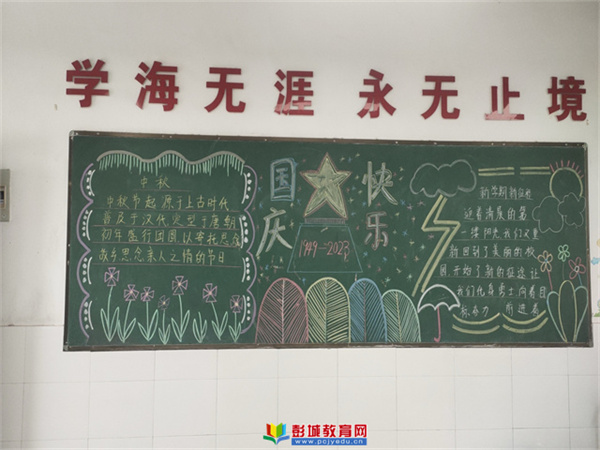 学海无涯 永无止境
中秋
中秋节起源于上古时代
普及于汉代定型于唐朝
初年
故乡思念亲人之情的节日
国庆
快乐
1949-2023
新学期新征程
迎着清晨的第
一缕阳光我们又重
新回到了美丽的校
园,开始了新的征途让
我们化身勇士向着目
标奋力 所进着
彭城教育网
www.pcjyedu.cn